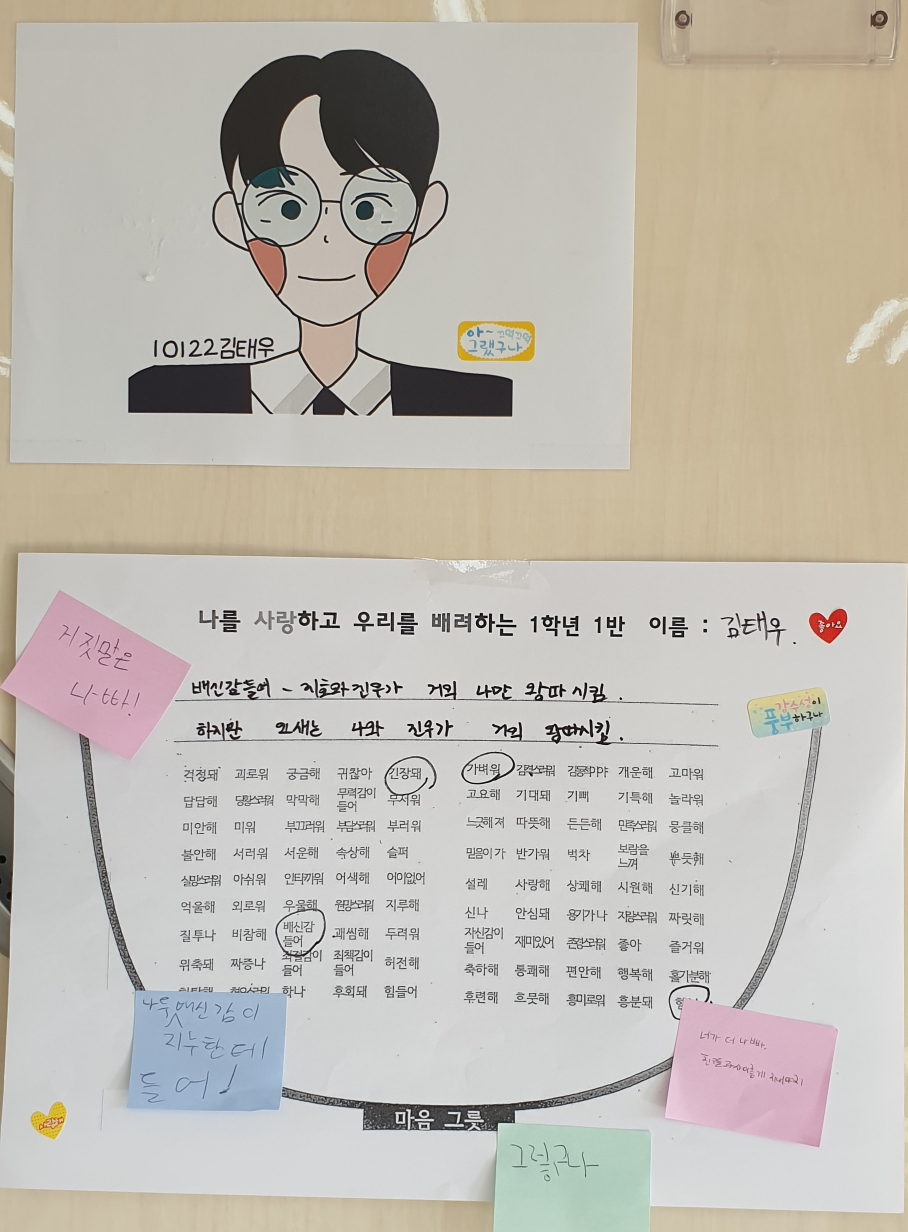 10122김태우
아~ 끄덕끄덕
그랬구나
나를 사랑하고 우리를 배려하는 1학년 1반 이름 : 김태우.
좋아요
거짓말은
나빠!
배신감들어 - 지호와진우가 거의 나만 왕따 시킴.
하지만 요새는 나와 진우가 거의 왕따시킬.
감수성이
풍부하구나
걱정돼 괴로워 궁금해 귀찮아 긴장돼
답답해 당황스러워 막막해 무력감이 들어 무서워
미안해 미워 부끄러워 부담스러워 부러워
불안해 서러워 서운해 속상해 슬퍼
실망스러워 아쉬워 안타까워 어색해 어이없어
억울해 외로워 우울해 원망스러워 지루해
질투나 비참해 배신감 들어 괘씸해 두려워
위축돼 짜증나 좌절감이 들어 죄책감이 들어 허전해
화나 후회돼 힘들어
가벼워 감격스러워 감동적이야 개운해 고마워
고요해 기대돼 기뻐 기특해 놀라워
느긋해 져 따뜻해 든든해 만족스러워 뭉클해
믿음이 가 반가워 벅차 보람을 느껴 뿌듯해
설레 사랑해 상쾌해 시원해 신기해
신나 안심돼 용기가 나 자랑스러워 짜릿해
자신감이 들어 재미있어 존경스러워 좋아 즐거워
축하해 통쾌해 편안해 행복해 홀가분해
후련해 흐뭇해 흥미로워 흥분돼
나욷배신감이
지누한테
들어!
너가 더 나빠.
마음 그릇
그렇구나